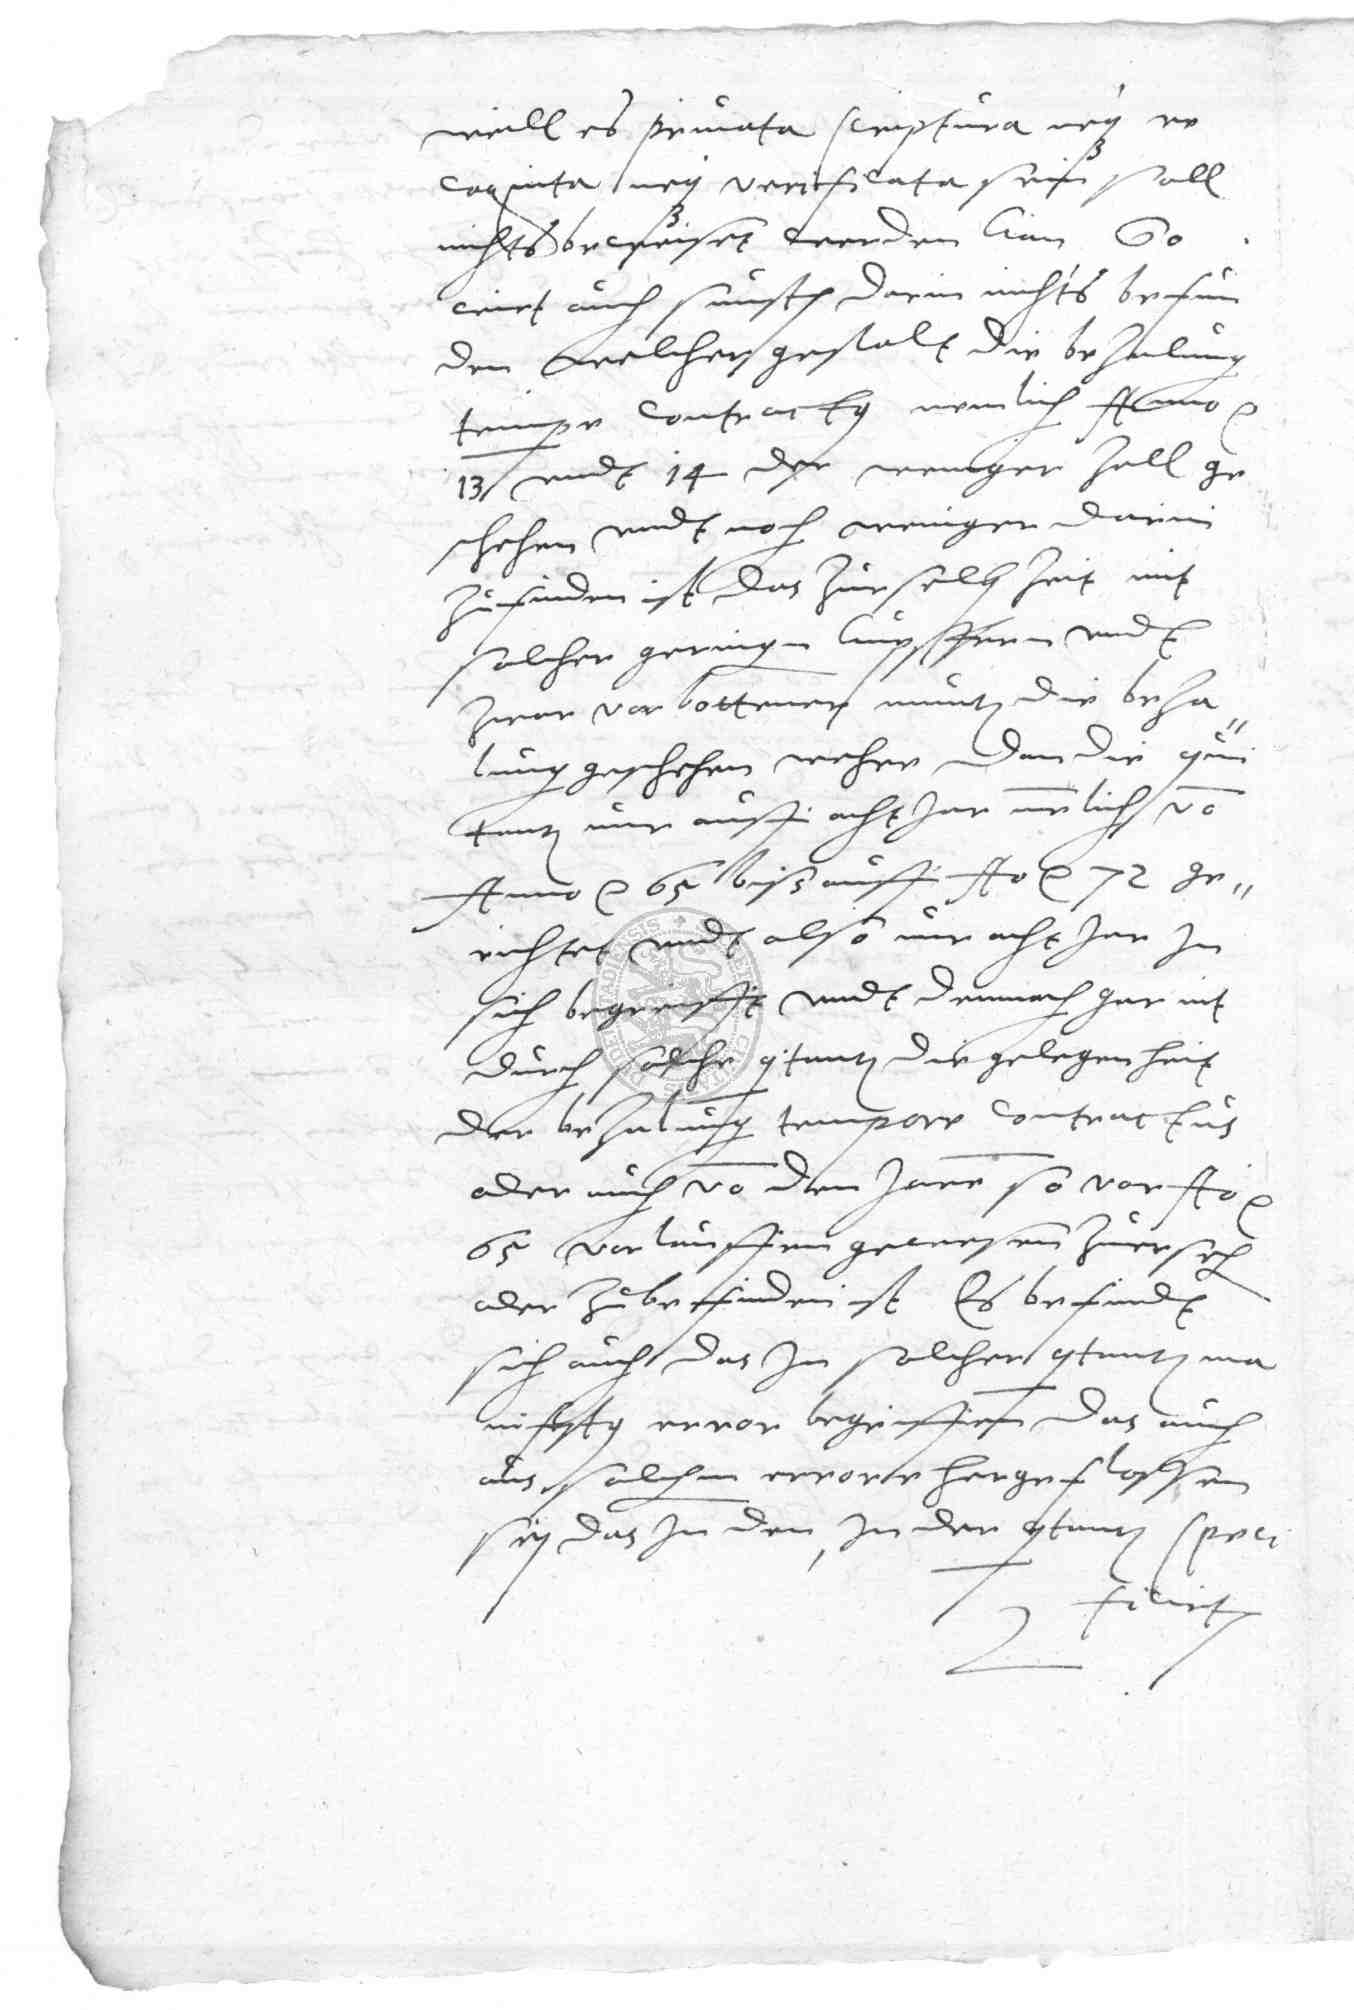 weill es priuata scriptura neq re
cognita neq verificata sein soll
nichts beweiset werden kan So
wirt auch sunsten darin nichts befun
den welcher gestalt die bezalung
tempe contractq nemlich Anno
13 undt 14 der weniger zall ge
schehen undt noch weniger darin
zufinden ist das zur selb Zeit mit
solcher geringen kupffern undt
zwar verbottener muntz die beza"
lung geschehen wehre dan die quit
tantz nur auff acht Jar nelich vo
Anno 65 biß auff Ao 72 ge"
richtet undt also nur acht Jar In
sich begreifft undt demnach gar nit
durch solche qtantz die gelegenheit
der bezalung tempore contractus
oder auch vo den Jare so vor Ao
65 verlauffen gewesen zuerseh
oder zubefinden ist Es befindt
sich auch das In solcher qtantz ma
nifestq error begriffen das auch
aus solchen errore hergeflossen
sey das In den, In der qtantz speci
ficirt
CIVITATIS